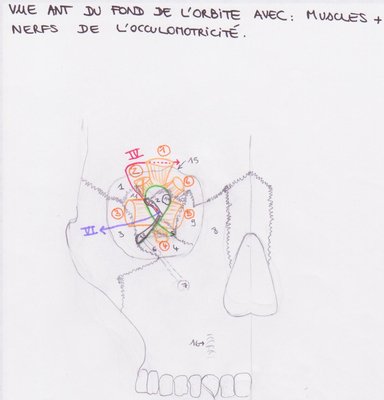 VUE ANT DU FOND DE L'ORBITE AVEC: MUSCLES +
NERFS DE L'OCCULOMOTRICITÉ.
IV
1
15
2
6
1
3
5
9
VI
3
4
6
4
8
7
16→